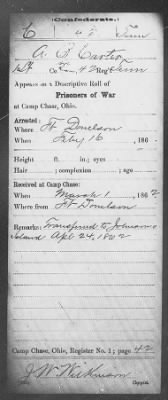 Confederate.
C 42 Tenn
A. S. Carter
Co. 42 Reg't Tenn
Appears on a Descriptive Roll of
Prisoners of War
at Camp Chase, Ohio.
Arrested:
Where Ft Donelson
When Feby 16, 186
Height ft. in.; eyes
Hair ; complexion ; age
Received at Camp Chase:
When March 1, 1862
Where from Ft Donelson
Remarks: Transferred to Johnsons
Island Apl 24, 1862
Camp Chase, Ohio, Register No. 1; page 42
J W Wilkinson